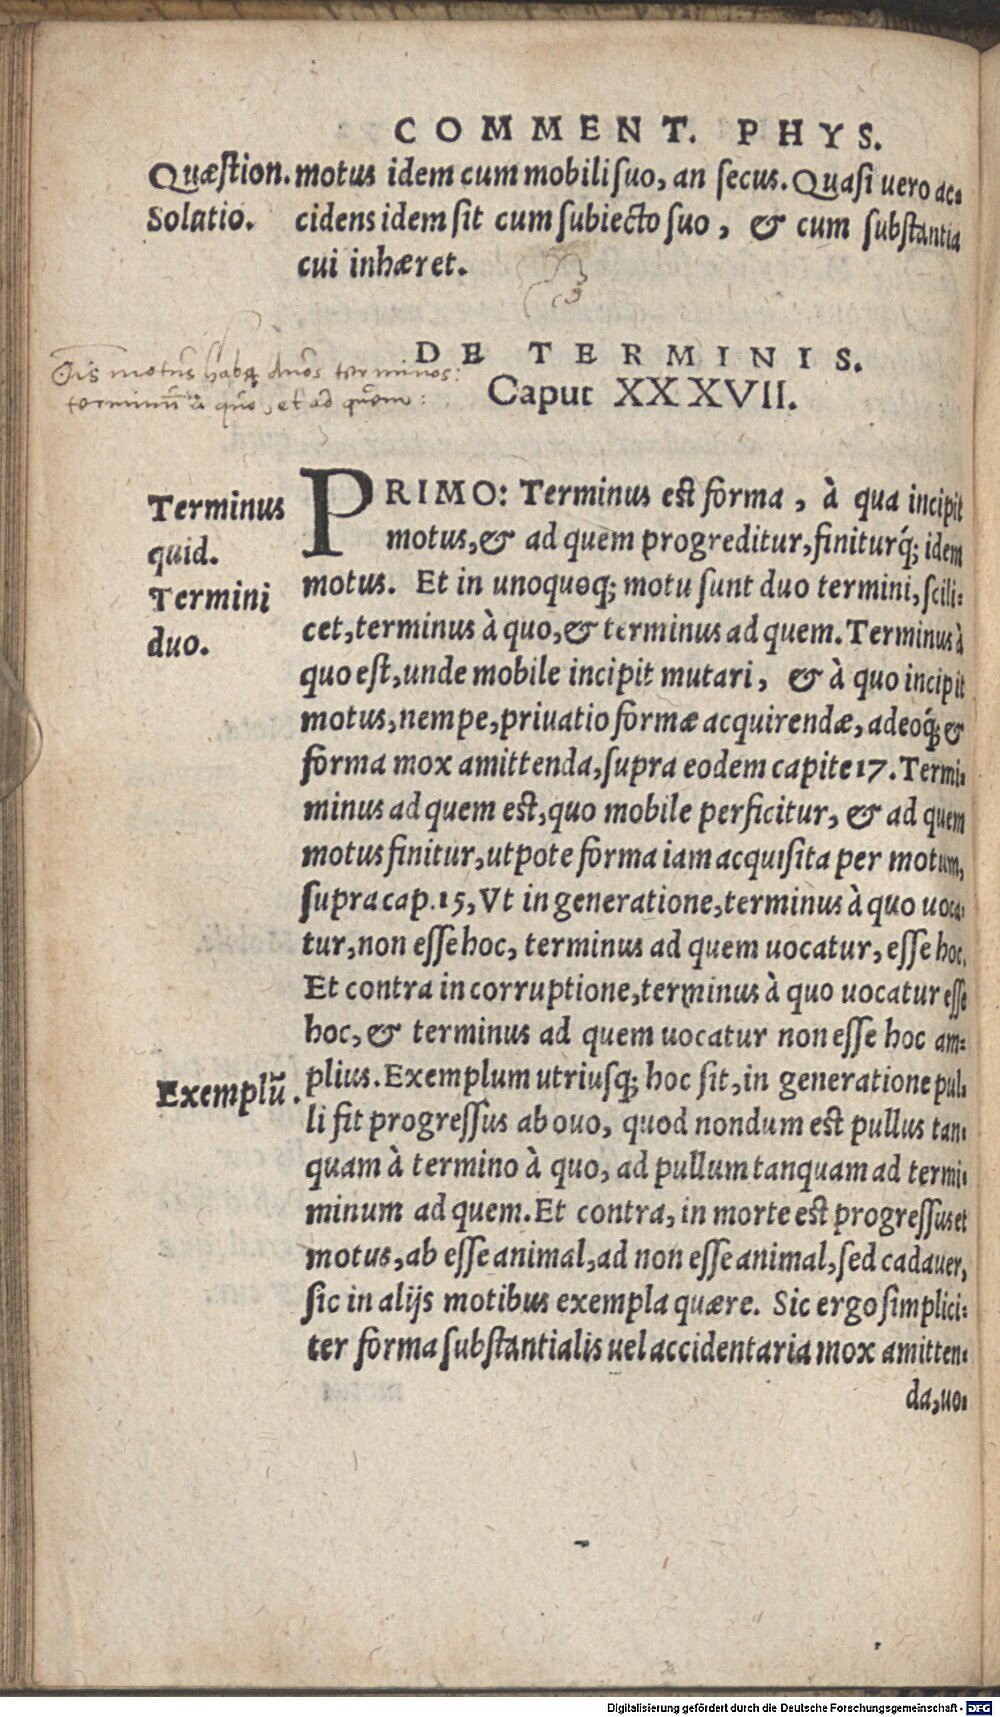 COMMENT. PHYS.
Quæstion.
Solatio.
motus idem cum mobili suo, an secus. Quasi uero ac=
cidens idem sit cum subiecto suo, & cum substantia
cui inhæret.
DE TERMINIS.
Caput XXXVII.
Oīs motus habet duos terminos:
terminū à quo, et ad quem:
Terminus
quid.
Termini
duo.
PRIMO: Terminus est forma, à qua incipit
motus, & ad quem progreditur, finiturq́; idem
motus. Et in unoquoq; motu sunt duo termini, scili=
cet, terminus à quo, & terminus ad quem. Terminus à
quo est, unde mobile incipit mutari, & à quo incipit
motus, nempe, priuatio formæ acquirendæ, adeoq́; &
forma mox amittenda, supra eodem capite 17. Termi=
minus ad quem est, quo mobile perficitur, & ad quem
motus finitur, utpote forma iam acquisita per motum,
supra cap. 15, Vt in generatione, terminus à quo uoca=
tur, non esse hoc, terminus ad quem uocatur, esse hoc.
Et contra in corruptione, terminus à quo uocatur esse
hoc, & terminus ad quem uocatur non esse hoc am=
Exemplū.
plius. Exemplum utriusq; hoc sit, in generatione pul=
li fit progressus ab ouo, quod nondum est pullus tan=
quam à termino à quo, ad pullum tanquam ad termi=
minum ad quem. Et contra, in morte est progressus et
motus, ab esse animal, ad non esse animal, sed cadauer,
sic in alijs motibus exempla quære. Sic ergo simplici=
ter forma substantialis uel accidentaria mox amitten=
da, uo=
Digitalisierung gefördert durch die Deutsche Forschungsgemeinschaft - DFG